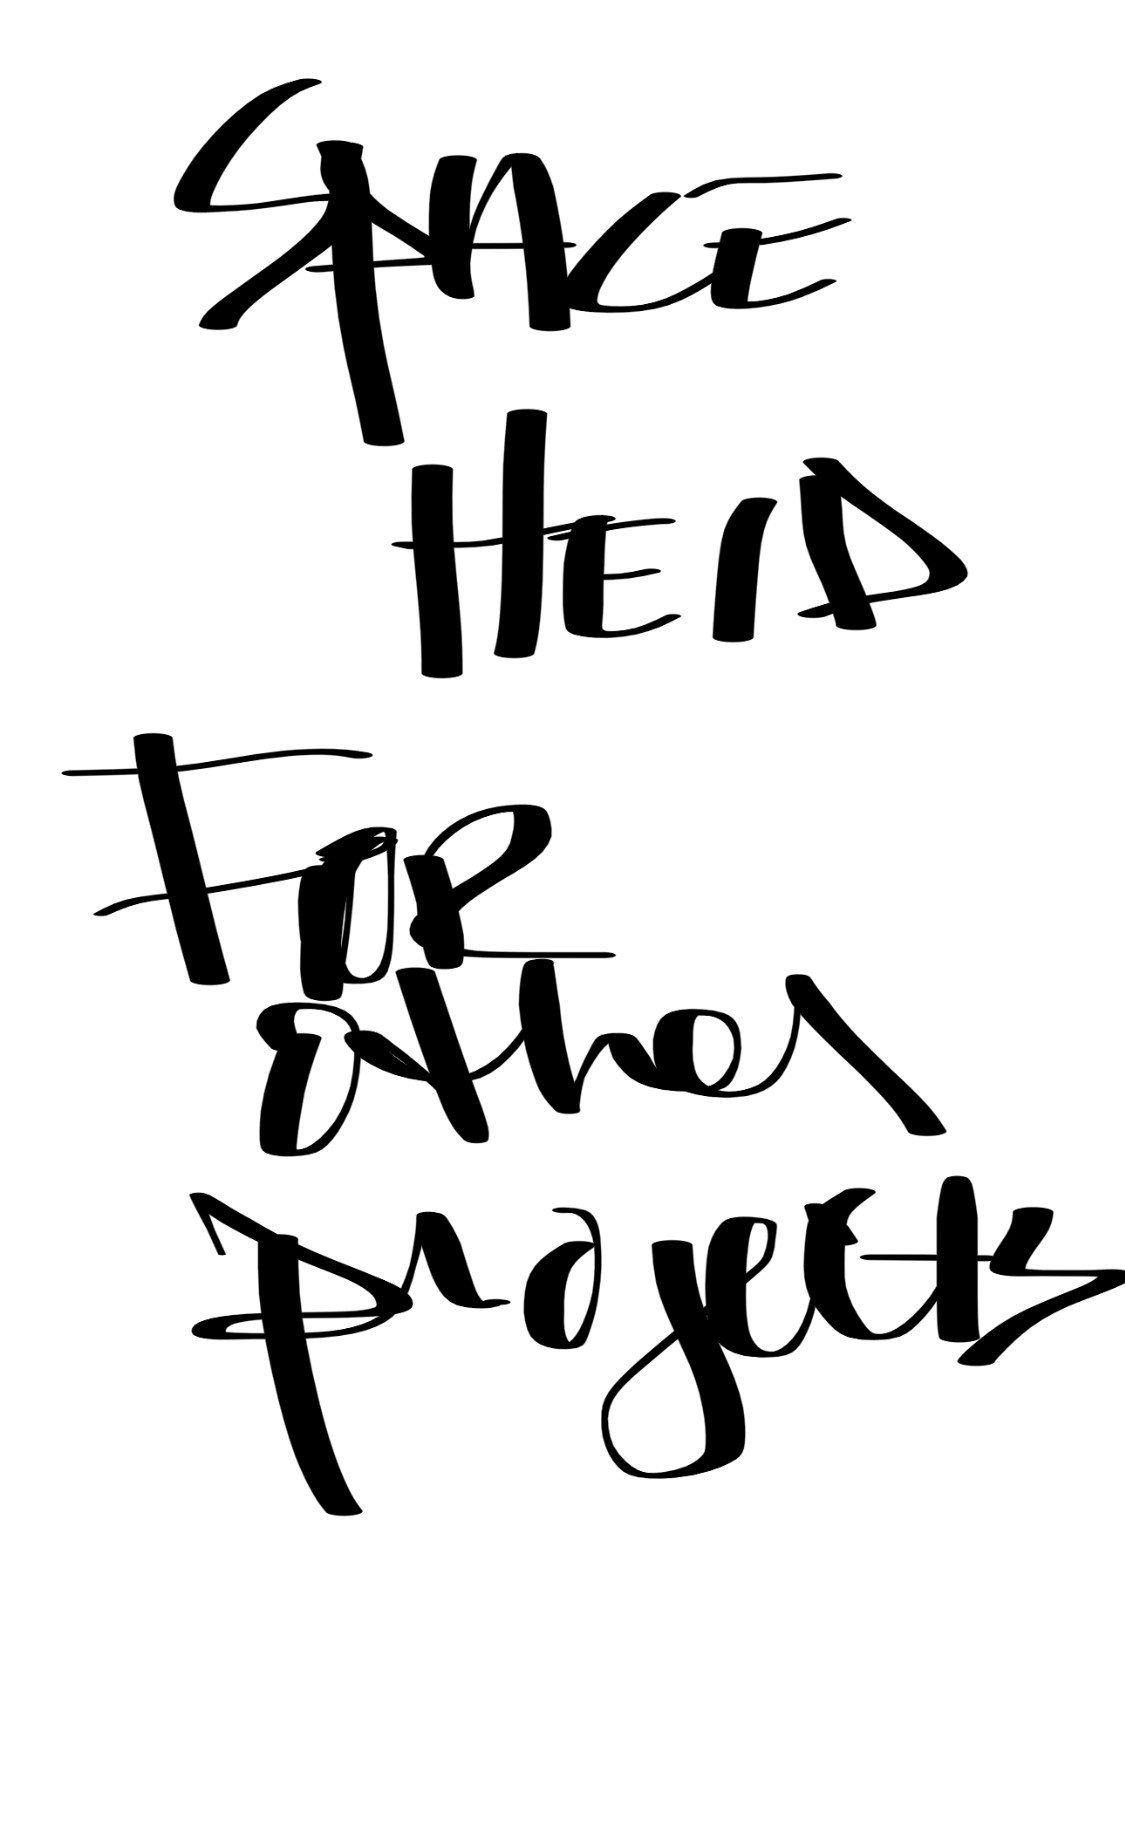 SPACE
HEID
FOR
other
projects